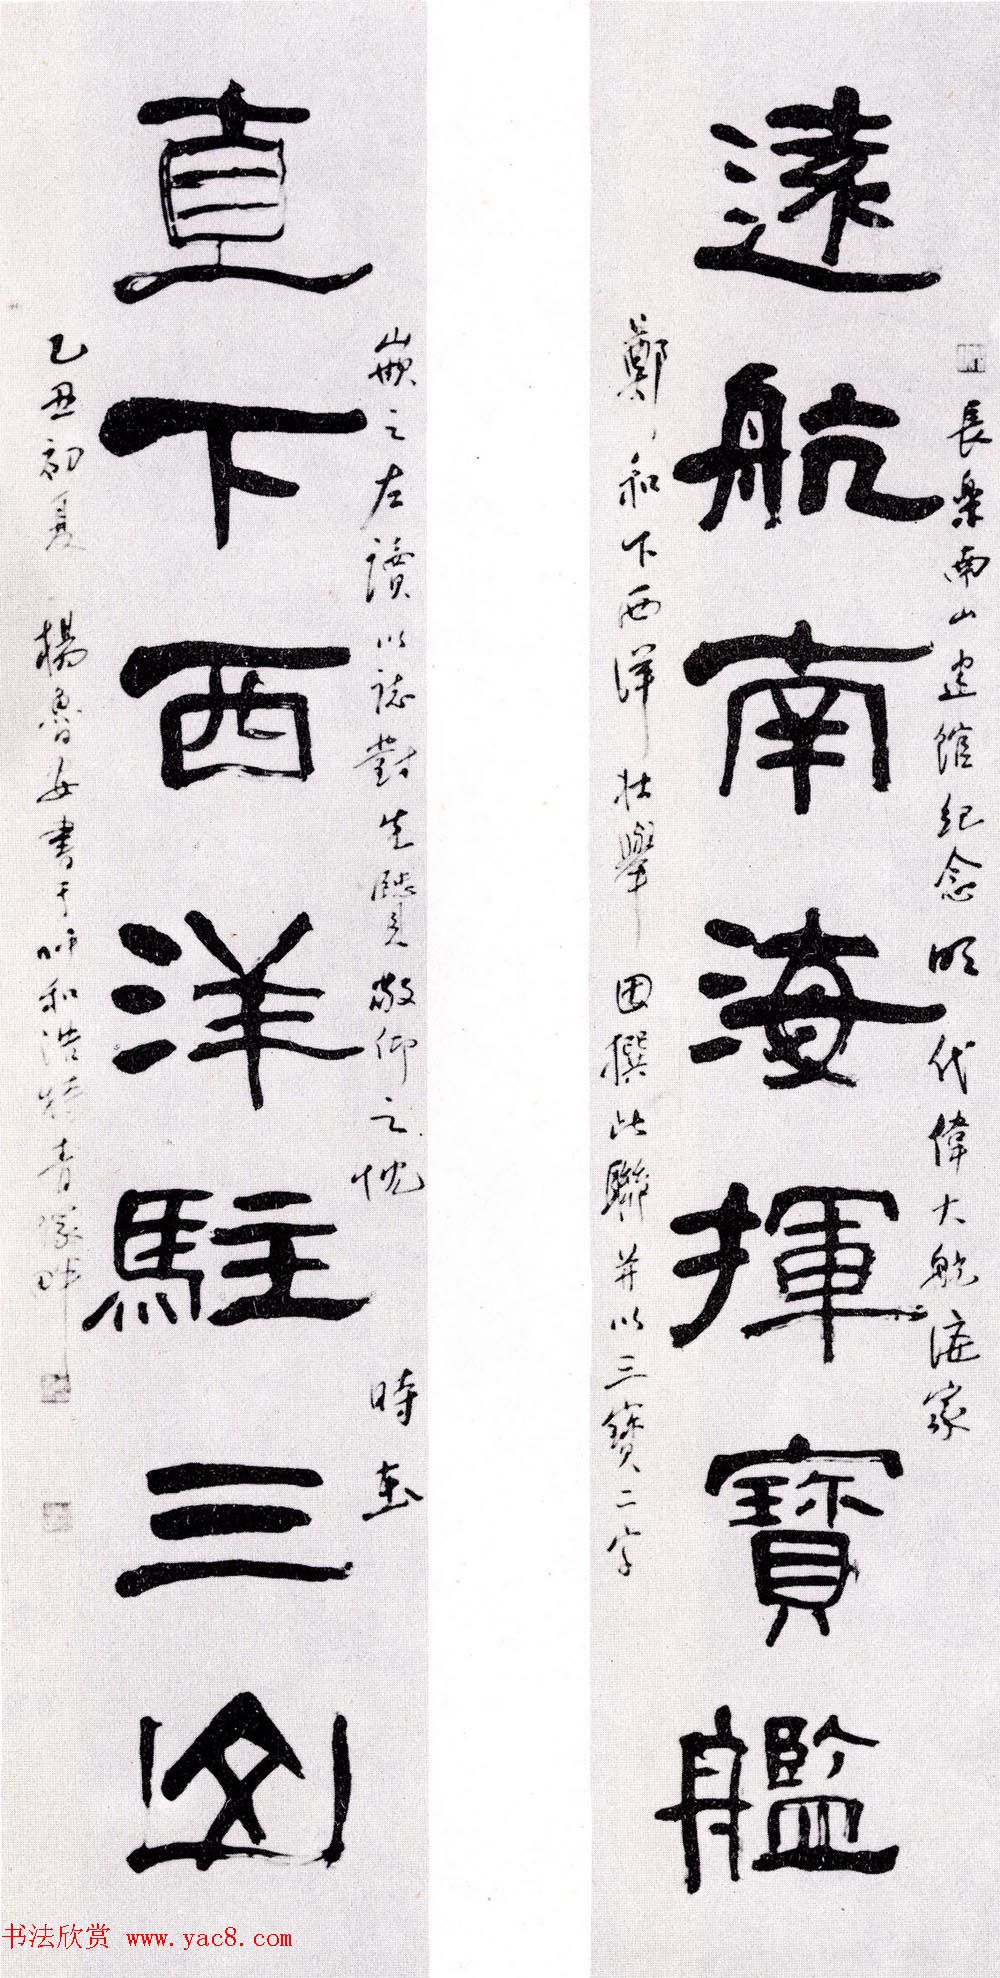 遠航南海揮寶艦
長樂南山建館紀念明代偉大航海家
鄭和下西洋壯舉 因撰此聯并以三寶二字
直下西洋駐三山
嵌之左讀以誌對先賢敬仰之忱 時在
乙丑初夏 楊魯安書于呼和浩特青冢畔
书法欣赏 www.yac8.com